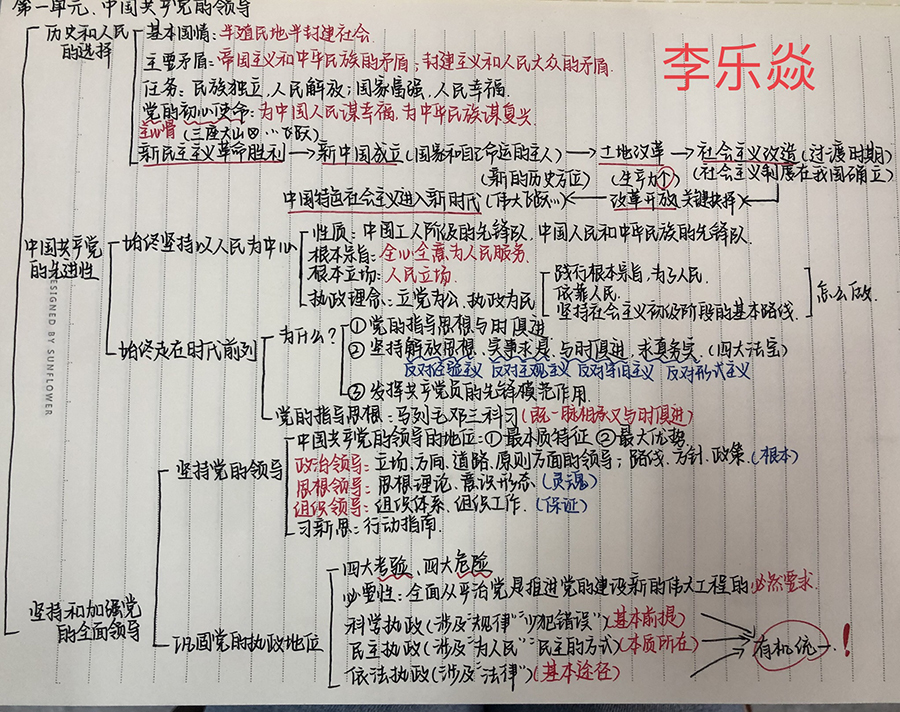 第一单元、中国共产党的领导
李乐焱
历史和人民的选择
基本国情：半殖民地半封建社会.
主要矛盾：帝国主义和中华民族的矛盾；封建主义和人民大众的矛盾.
任务：民族独立,人民解放；国家富强,人民幸福.
党的初心使命：为中国人民谋幸福,为中华民族谋复兴
主心骨(三座大山 … 飞跃)
新民主主义革命胜利→新中国成立(国家和自己命运的主人)→土地改革→社会主义改造(过渡时期)
(新的历史方位) (生产力↑) (社会主义制度在我国确立)
中国特色社会主义进入新时代(伟大飞跃…)←改革开放(关键抉择)←
中国共产党的先进性
始终坚持以人民为中心
性质：中国工人阶级的先锋队.中国人民和中华民族的先锋队.
根本宗旨：全心全意为人民服务.
根本立场：人民立场.
执政理念：立党为公、执政为民
践行根本宗旨,为了人民.
依靠人民.
坚持社会主义初级阶段的基本路线.
怎么做.
始终走在时代前列
为什么?
①党的指导思想与时俱进
②坚持解放思想、实事求是、与时俱进,求真务实(四大法宝)
反对经验主义 反对主观主义 反对守旧主义 反对形式主义
③发挥共产党员的先锋模范作用.
党的指导思想：马列毛邓三科习(既一脉相承又与时俱进)
DESIGNED BY SUNFLOWER
坚持和加强党的全面领导
坚持党的领导
中国共产党的领导的地位：①最本质特征 ②最大优势.
政治领导：立场、方向、道路、原则方面的领导；路线、方针、政策(根本)
思想领导：思想理论、意识形态(灵魂)
组织领导：组织体系、组织工作.(保证)
习新思：行动指南.
巩固党的执政地位
四大考验、四大危险
必要性：全面从严治党是推进党的建设新的伟大工程的必然要求.
科学执政(涉及"规律""少犯错误")基本前提
民主执政(涉及"为人民""民主的方式)(本质所在)
依法执政(涉及"法律")(基本途径)
有机统一.!